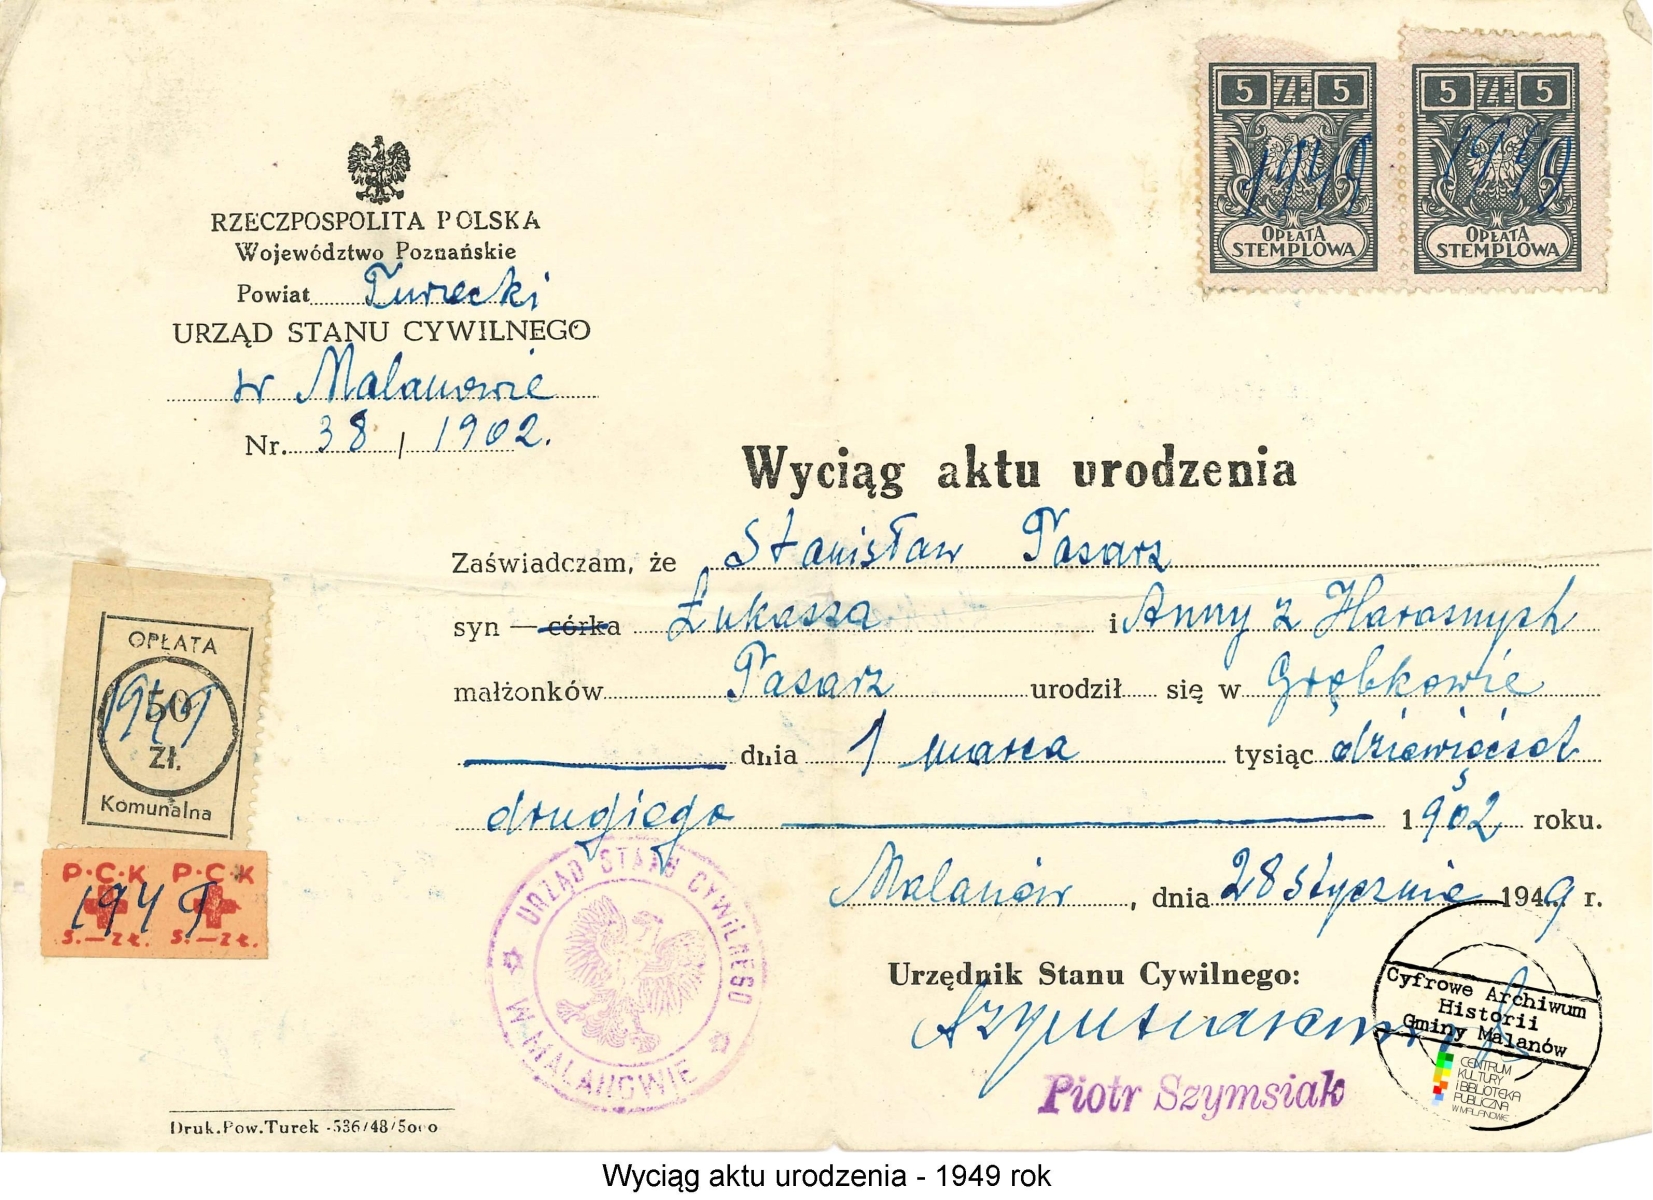 5 ZŁ 5
OPŁATA
STEMPLOWA
1949
5 ZŁ 5
OPŁATA
STEMPLOWA
1949
RZECZPOSPOLITA POLSKA
Województwo Poznańskie
Powiat Turecki
URZĄD STANU CYWILNEGO
w Malanowie
Nr. 38 / 1902.
Wyciąg aktu urodzenia
Zaświadczam, że Stanisław Pasarz
syn — córka Łukasza i Anny z
małżonków Pasarz urodził się w Grąbkowie
dnia 1 marca tysiąc dziewięćset
drugiego 1902 roku.
Malanów, dnia 28 stycznia 1949 r.
Urzędnik Stanu Cywilnego:
Piotr Szymsiak
OPŁATA
50
Zł.
Komunalna
1949
P·C·K P·C·K
1949
5.—ZŁ. 5.—ZŁ.
URZĄD STANU CYWILNEGO
W MALANOWIE
Cyfrowe Archiwum
Historii
Gminy Malanów
CENTRUM
KULTURY
I BIBLIOTEKA
PUBLICZNA
W MALANOWIE
Druk.Pow.Turek -536/48/5000
Wyciąg aktu urodzenia - 1949 rok